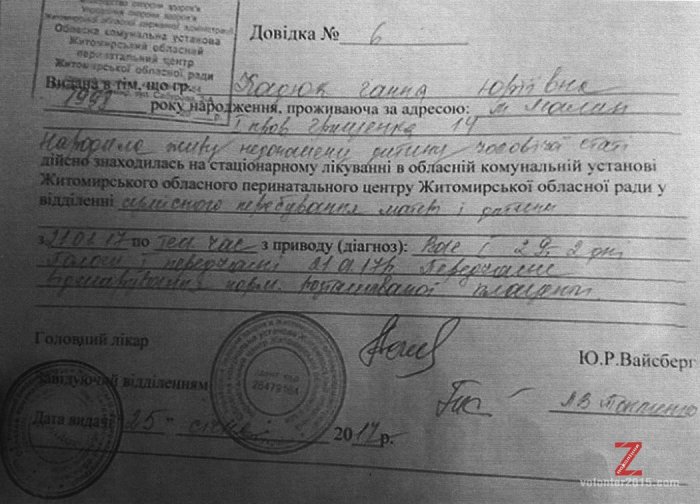 Міністерство охорони здоров'я
Управління охорони здоров'я
Житомирської обласної державної адміністрації
Обласна комунальна установа
Житомирський обласний
перинатальний центр
Житомирської обласної ради
Довідка № 6
Видана в тім, що гр. Ганна Юріївна
1993 року народження, проживаюча за адресою: м Малин
14
Народила живу недоношену дитину чоловічої статі
дійсно знаходилась на стаціонарному лікуванні в обласній комунальній установі
Житомирського обласного перинатального центру Житомирської обласної ради у
відділенні сумісного перебування матері і дитини
з 21.01.17 по теп час з приводу (діагноз): І 29. 2 дні
Пологи І передчасні 21.01.17р. Передчасне
відшарування норм. розташованої плаценти.
Головний лікар
Ю.Р.Вайсберг
Завідуючий відділенням
Дата видачі 25 січня 2017 р.
26479564
Z
volonter2015.com